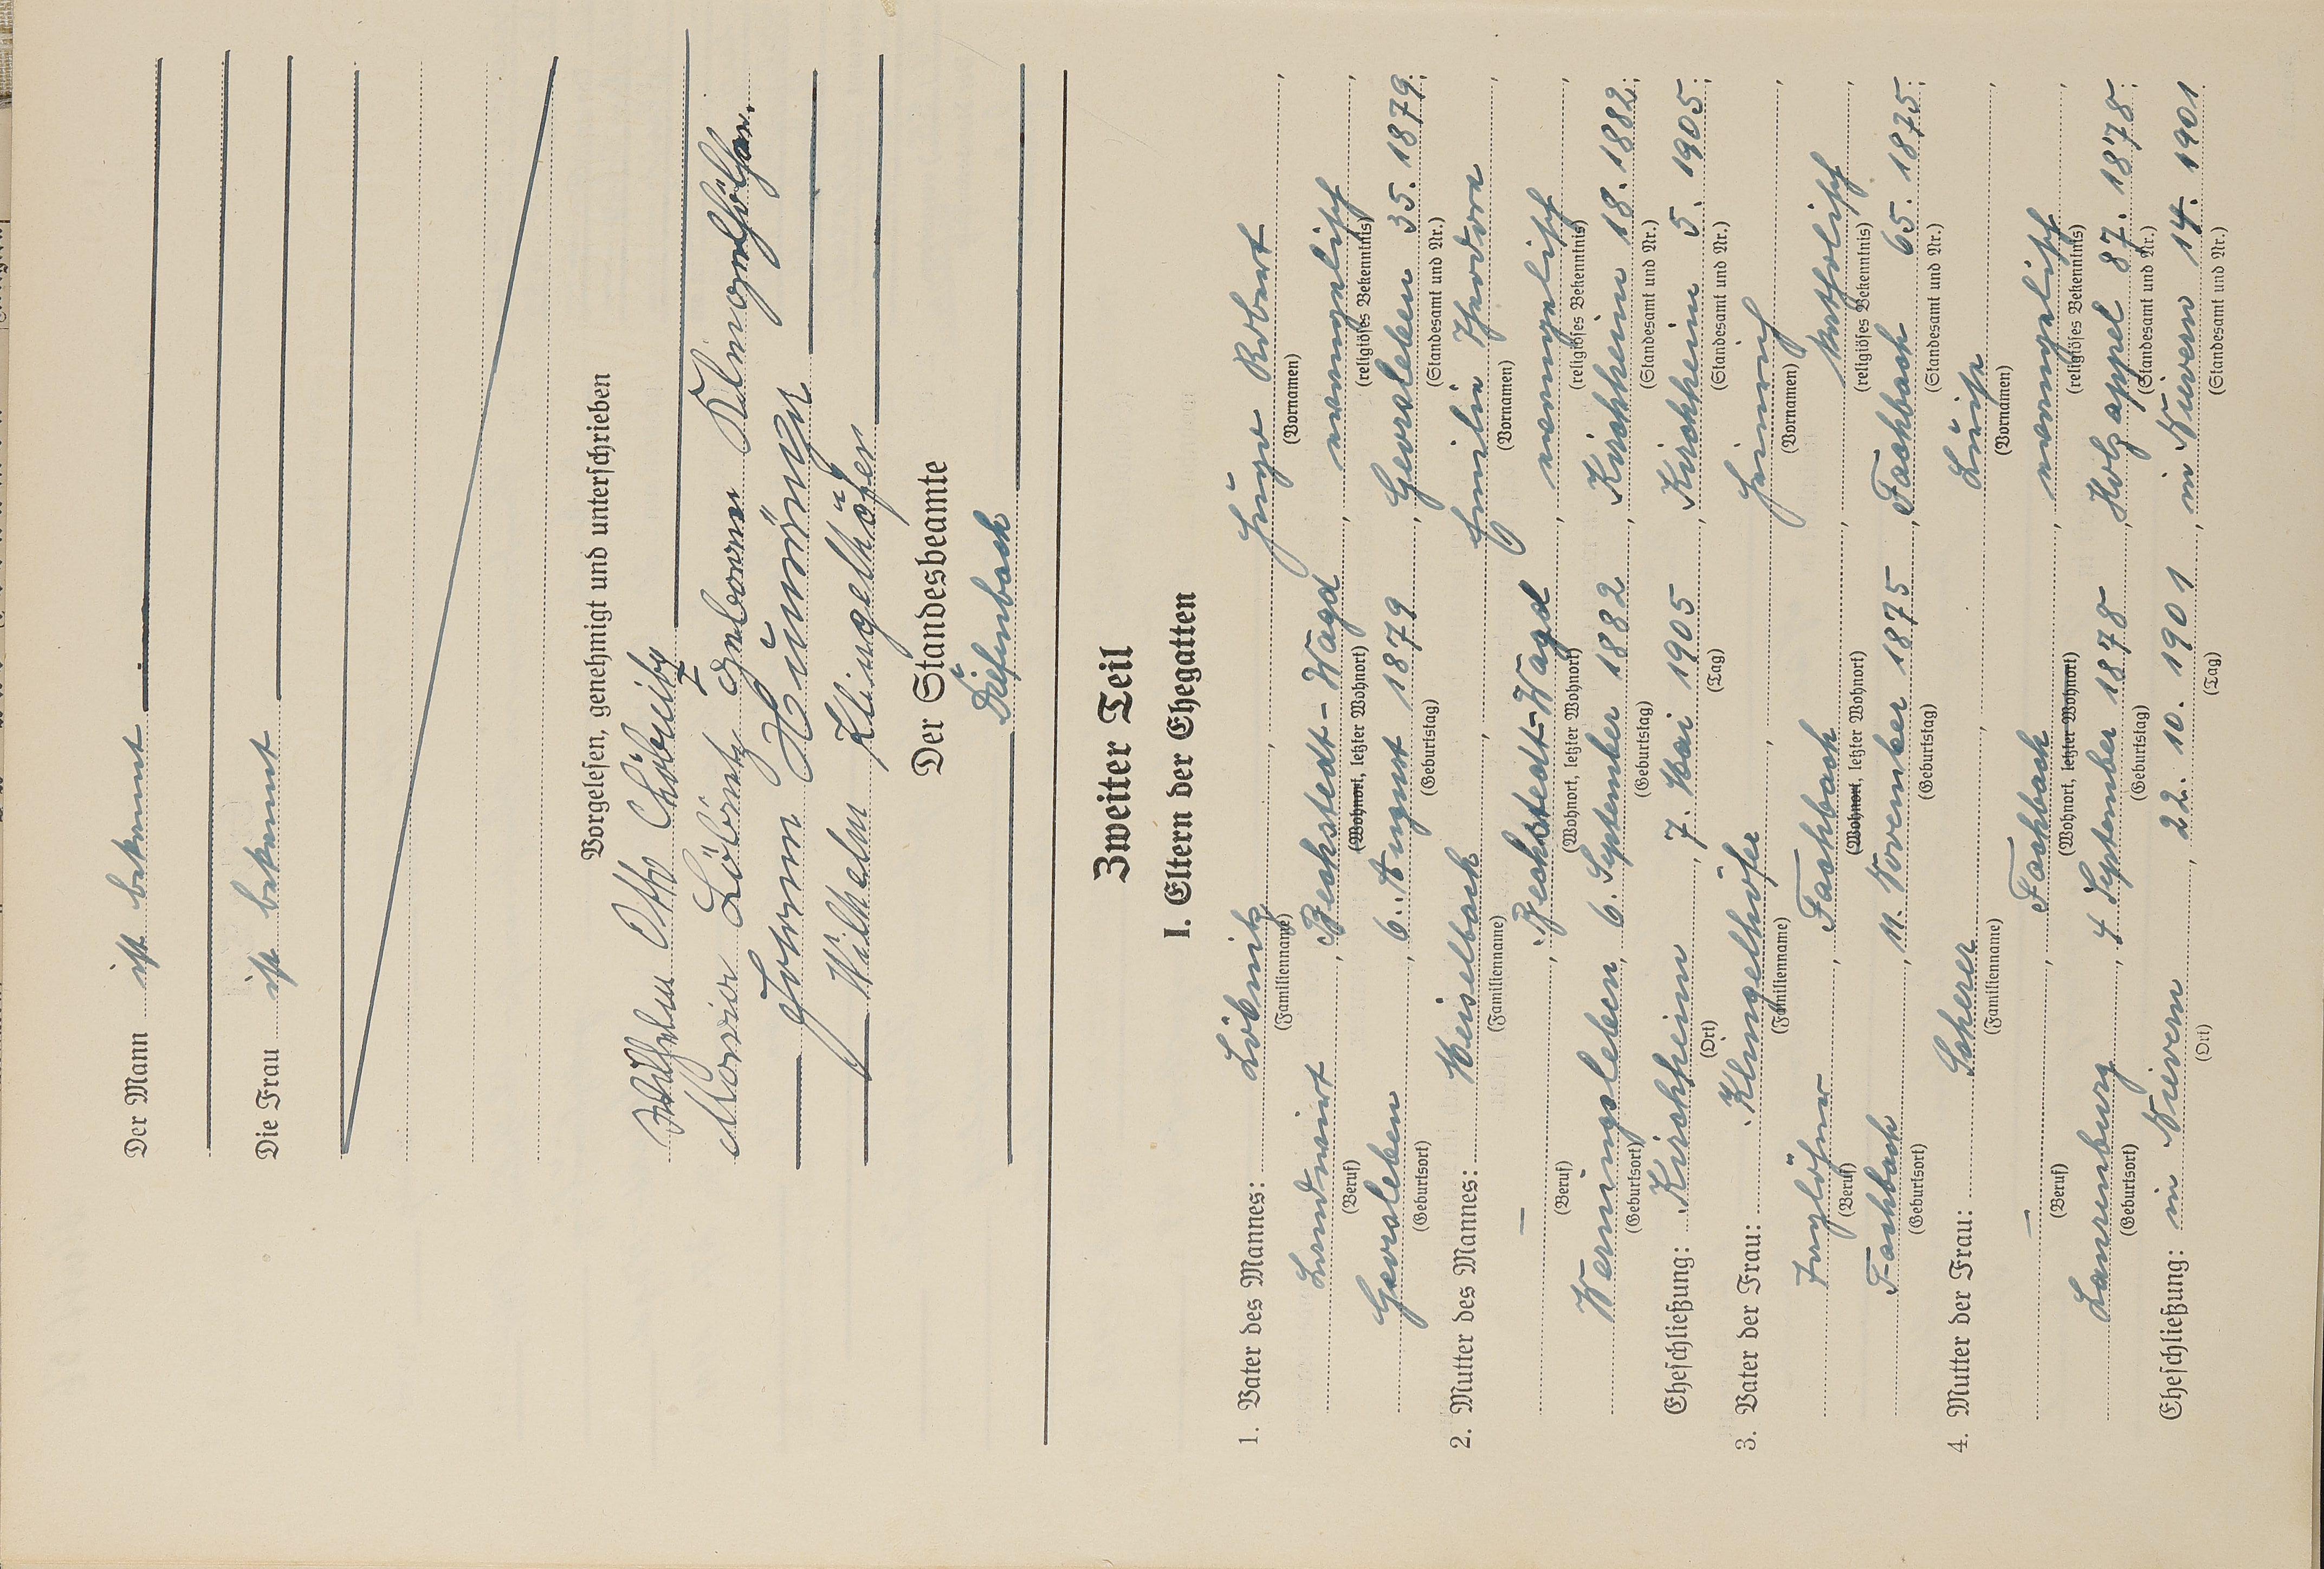 Der Mann ist bekannt
Die Frau ist bekannt
Vorgelesen, genehmigt und unterschrieben
Wilhelm Otto
Maria Löbnitz geborene Klingelhöfer.
Johann
Wilhelm Klingelhöfer
Der Standesbeamte
Diefenbach
Zweiter Teil
I. Eltern der Ehegatten
1. Vater des Mannes: Löbnitz, Hugo Robert,
(Familienname) (Vornamen)
Landwirt, Bechstedt-Wagd, evangelisch,
(Beruf) (Wohnort, letzter Wohnort) (religiöses Bekenntnis)
Gorsleben, 6. August 1879, Gorsleben 35. 1879;
(Geburtsort) (Geburtstag) (Standesamt und Nr.)
2. Mutter des Mannes: Weiselbach, Emilie Theodora,
(Familienname) (Vornamen)
–, Bechstedt-Wagd, evangelisch,
(Beruf) (Wohnort, letzter Wohnort) (religiöses Bekenntnis)
Werningsleben, 6. September 1882, Kirchheim 18. 1882;
(Geburtsort) (Geburtstag) (Standesamt und Nr.)
Eheschließung: Kirchheim, 7. Mai 1905, Kirchheim 5. 1905;
(Ort) (Tag) (Standesamt und Nr.)
3. Vater der Frau: Klingelhöfer, Heinrich,
(Familienname) (Vornamen)
Taglöhner, Fachbach, katholisch,
(Beruf) (Wohnort, letzter Wohnort) (religiöses Bekenntnis)
Fachbach, 11. November 1875, Fachbach 65. 1875;
(Geburtsort) (Geburtstag) (Standesamt und Nr.)
4. Mutter der Frau: Scherer, Luise,
(Familienname) (Vornamen)
–, Fachbach, evangelisch,
(Beruf) (Wohnort, letzter Wohnort) (religiöses Bekenntnis)
Laurenburg, 4 September 1878, Holzappel 87. 1878;
(Geburtsort) (Geburtstag) (Standesamt und Nr.)
Eheschließung: in Nievern, 22. 10. 1901, in Nievern 14. 1901.
(Ort) (Tag) (Standesamt und Nr.)